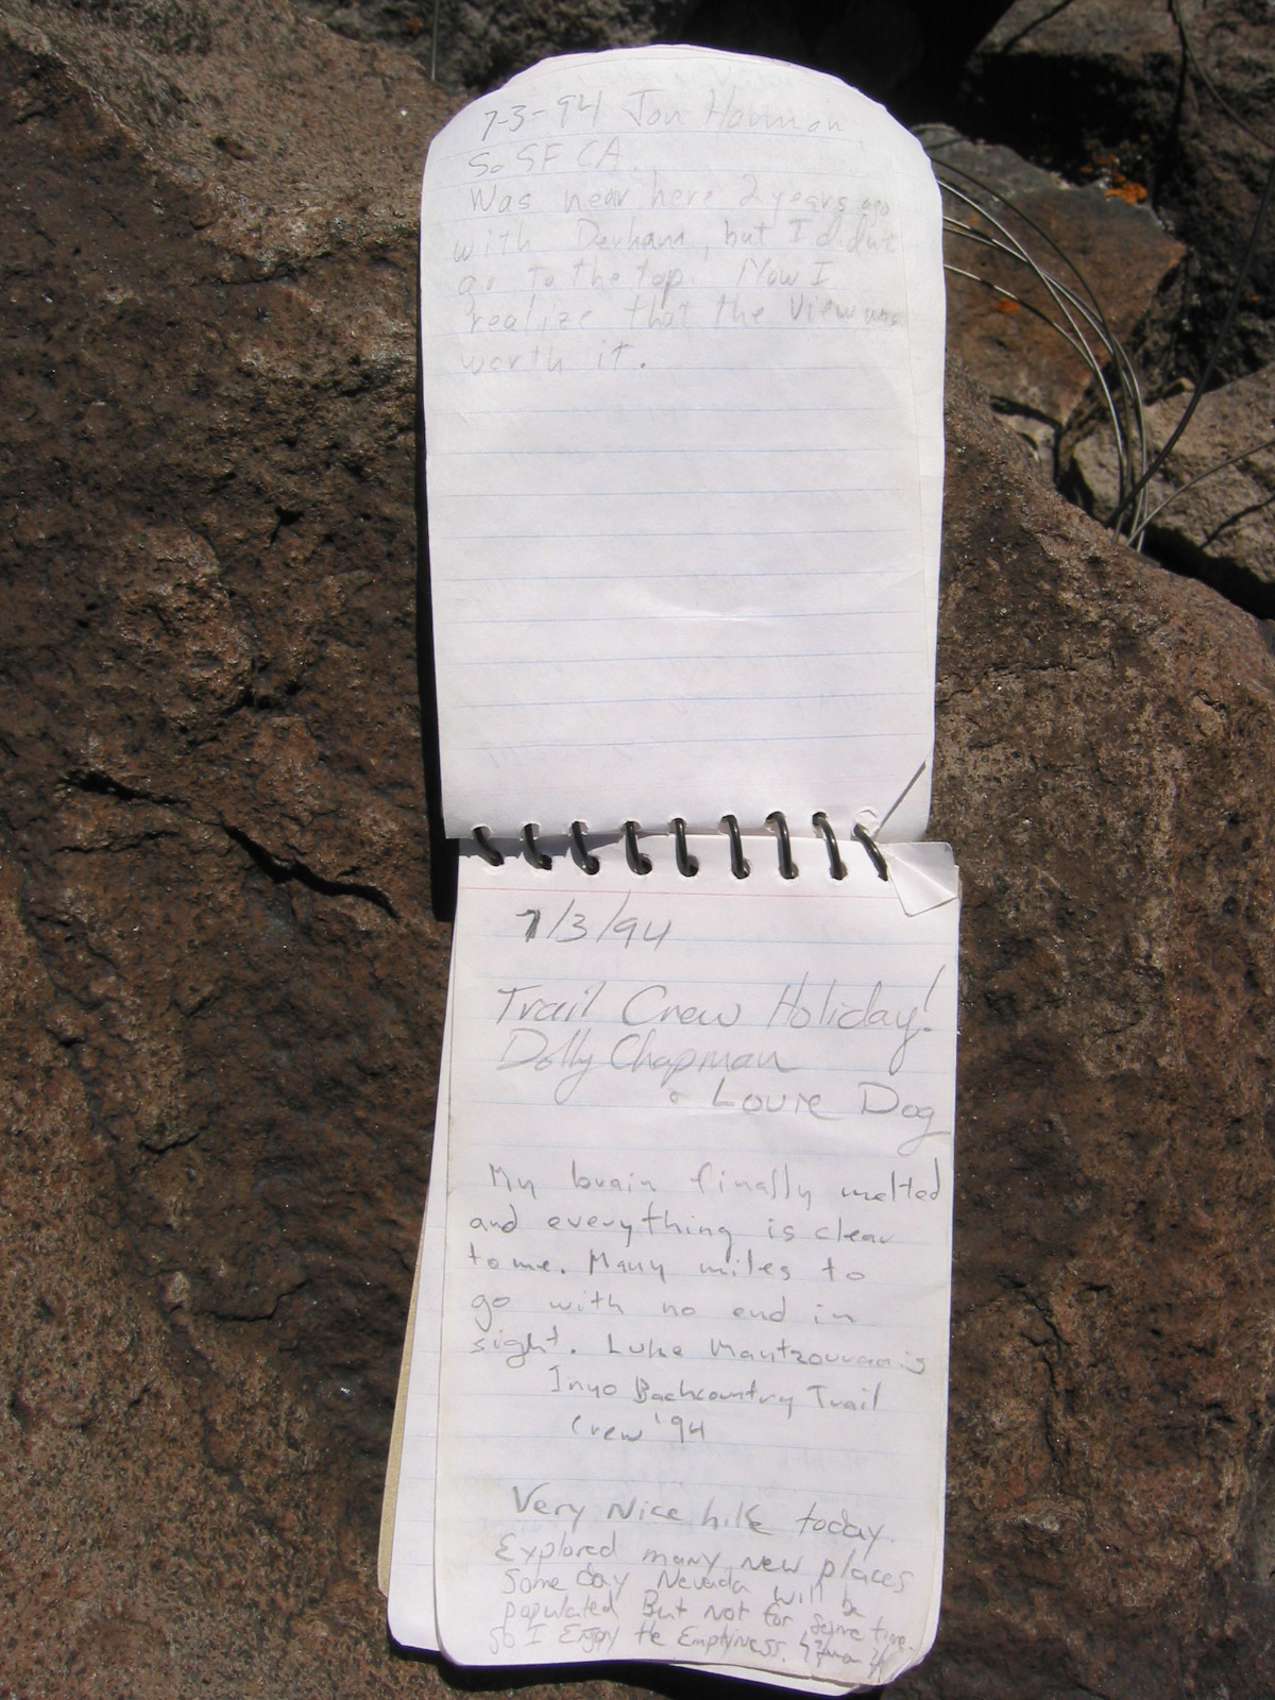 7-3-94 Jon
So SF CA.
Was near here 2 years ago
with Derham, but I didn't
go to the top. Now I
realize that the view was
worth it.
7/3/94
Trail Crew Holiday!
Dolly Chapman
& Louie Dog
My brain finally melted
and everything is clear
to me. Many miles to
go with no end in
sight. Luke Mantzouranis
Inyo Backcountry Trail
Crew '94
Very Nice hike today.
Explored many new places
Some day Nevada will be
populated But not for some time.
So I Enjoy the Emptyness.